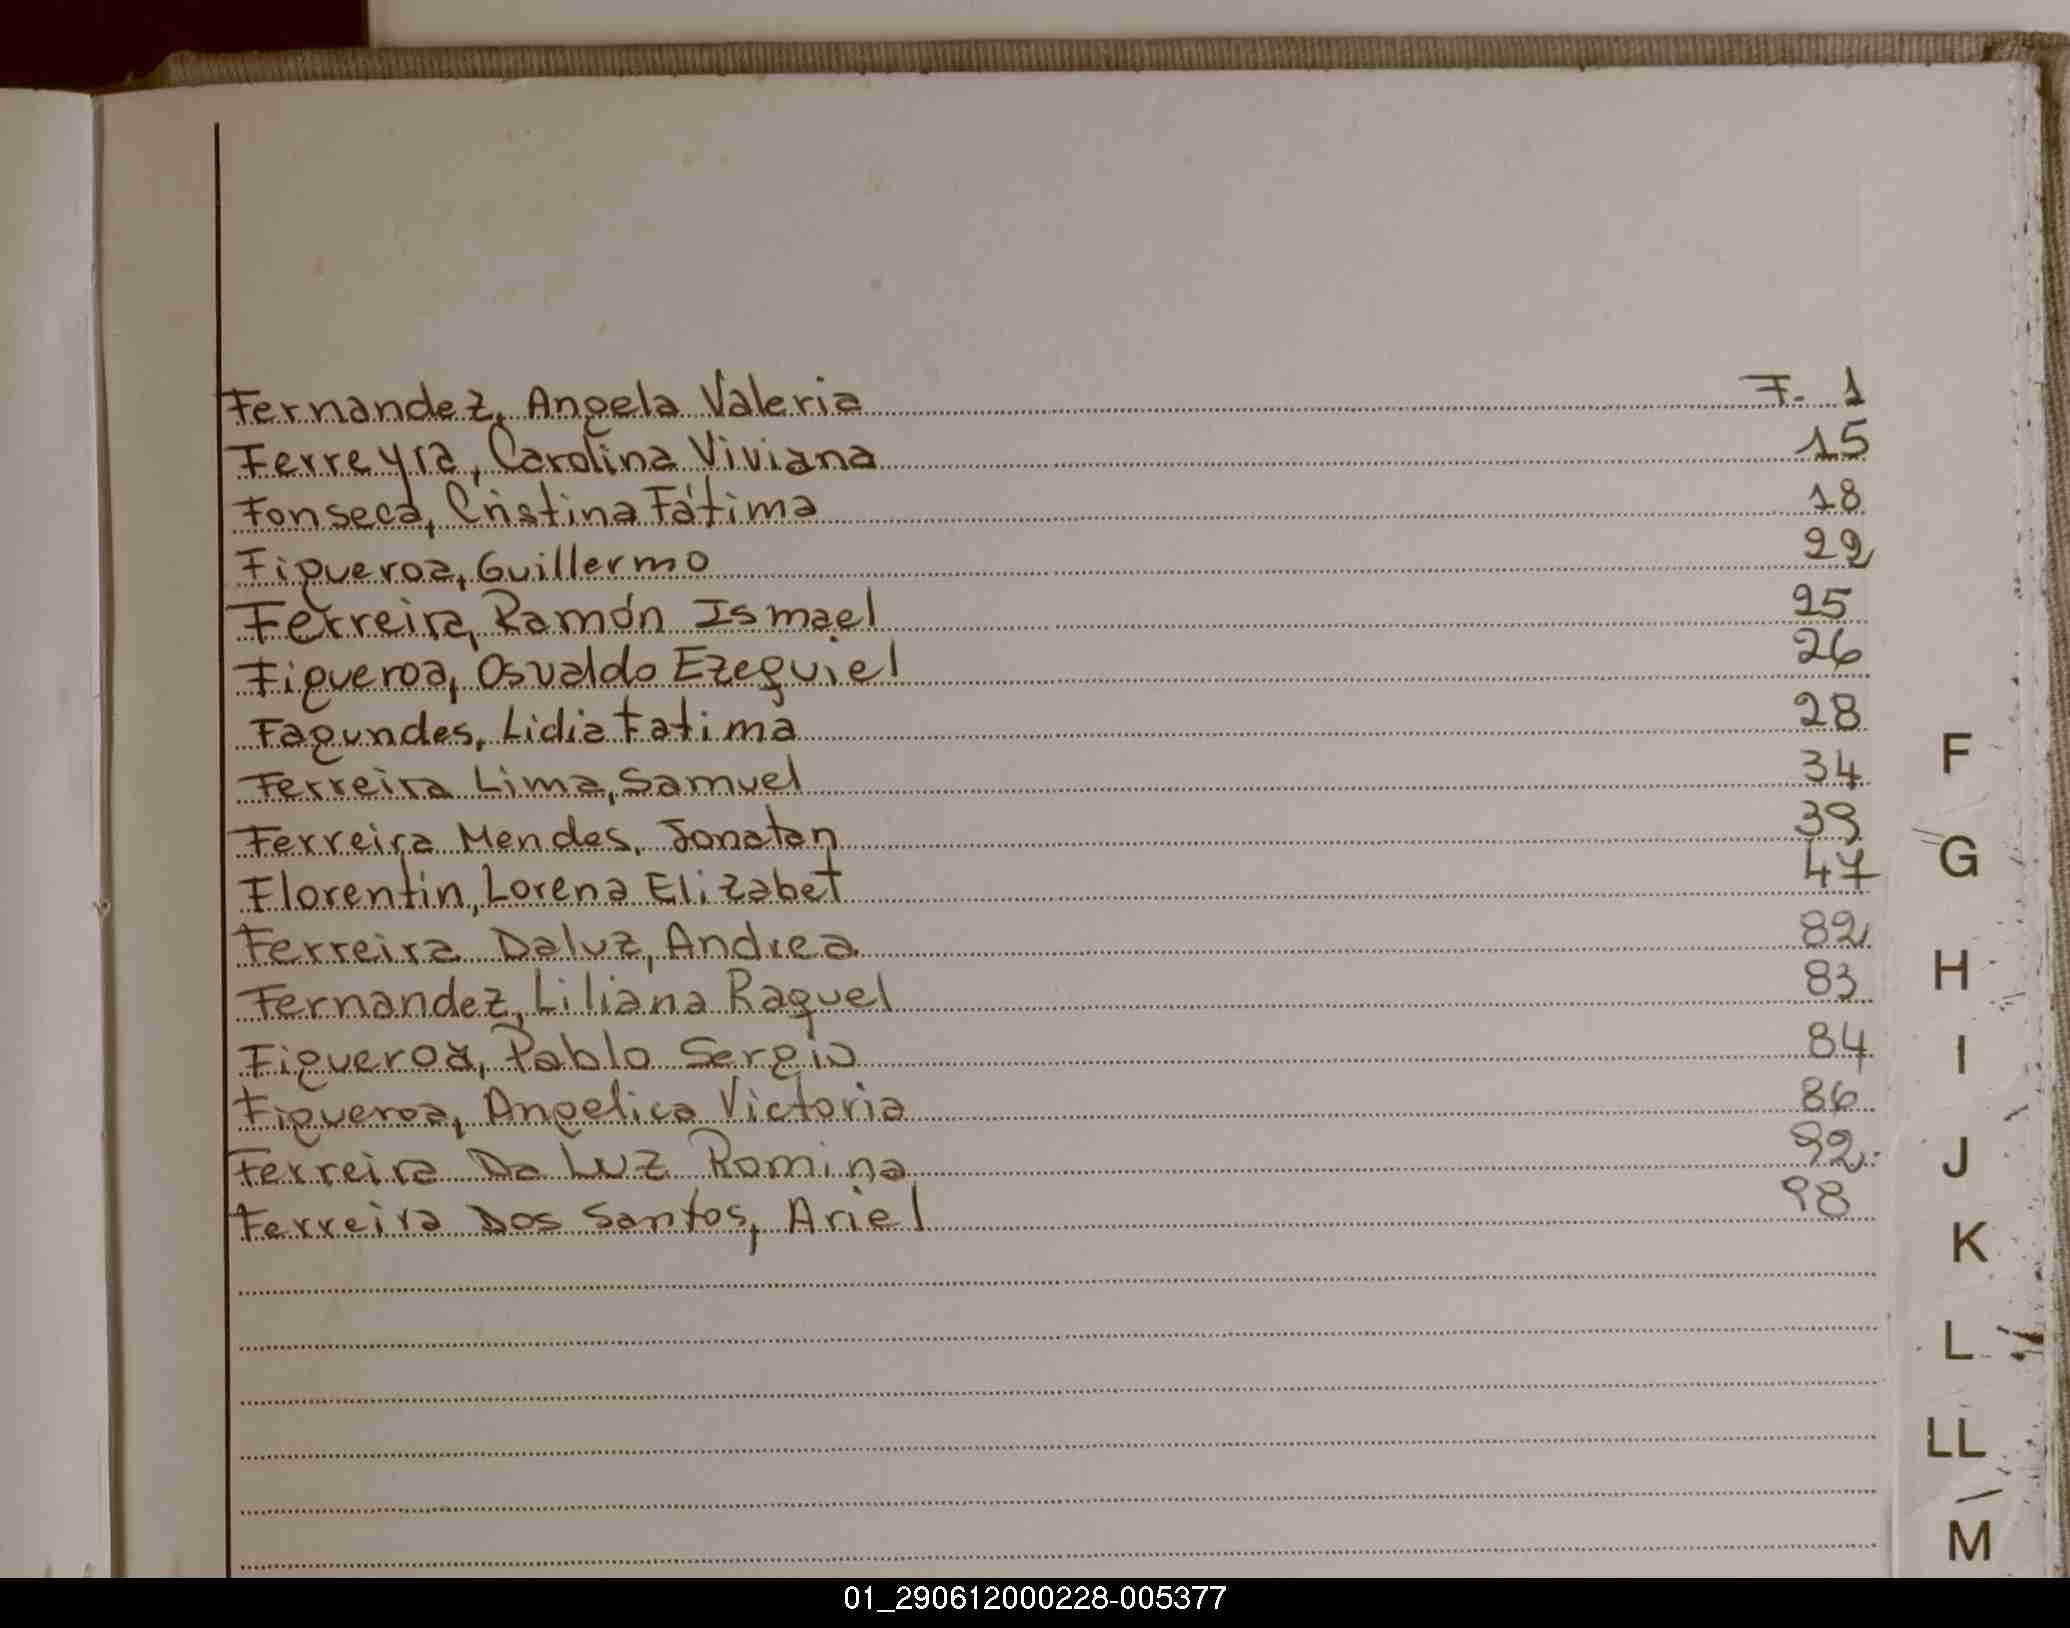 Fernandez, Angela Valeria F. 1
Ferreyra, Carolina Viviana 15
Fonseca, Cristina Fátima 18
Figueroa, Guillermo 22
Ferreira, Ramón Ismael 25
Figueroa, Osvaldo Ezequiel 26
Fagundes, Lidia Fatima 28
Ferreira Lima, Samuel 34
Ferreira Mendes, Jonatan 39
Florentin, Lorena Elizabet 47
Ferreira Daluz, Andrea 82
Fernandez, Liliana Raquel 83
Figueroa, Pablo Sergio 84
Figueroa, Angelica Victoria 86
Ferreira Da Luz Romina 92.
Ferreira Dos Santos, Ariel 98
F
G
H
I
J
K
L
LL
M
01_290612000228-005377